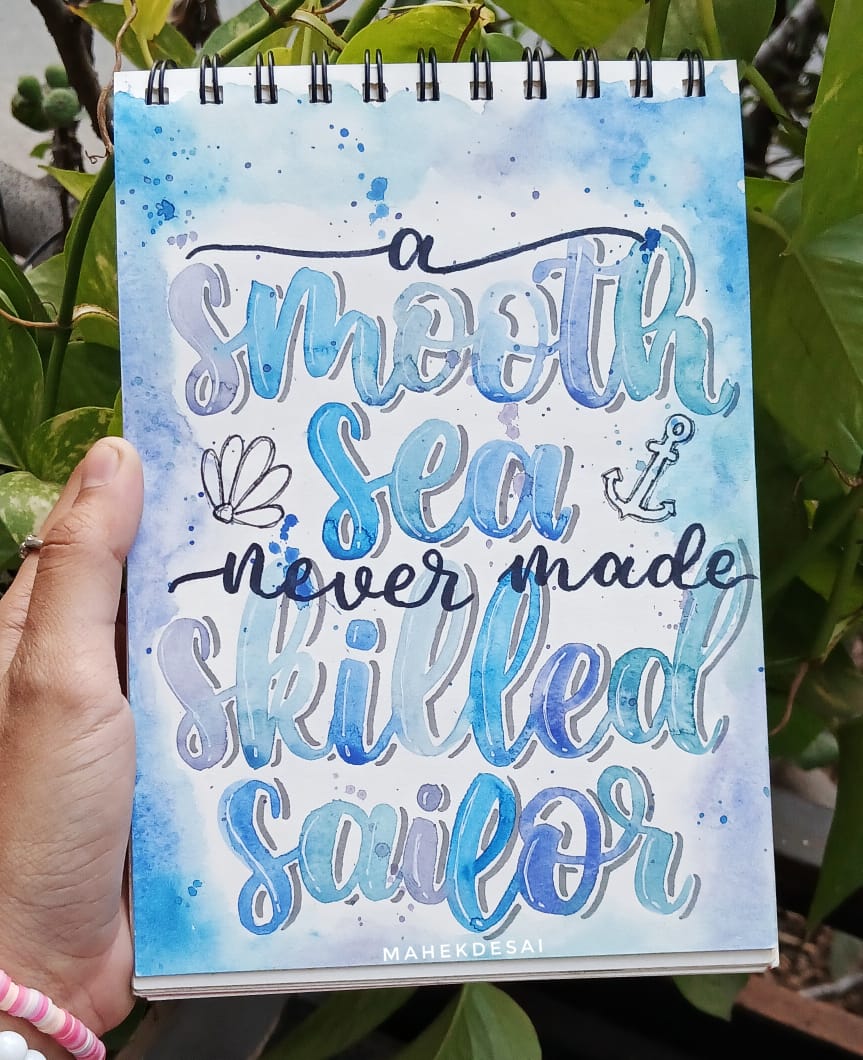 a
smooth
sea
never made
skilled
sailor
MAHEKDESAI